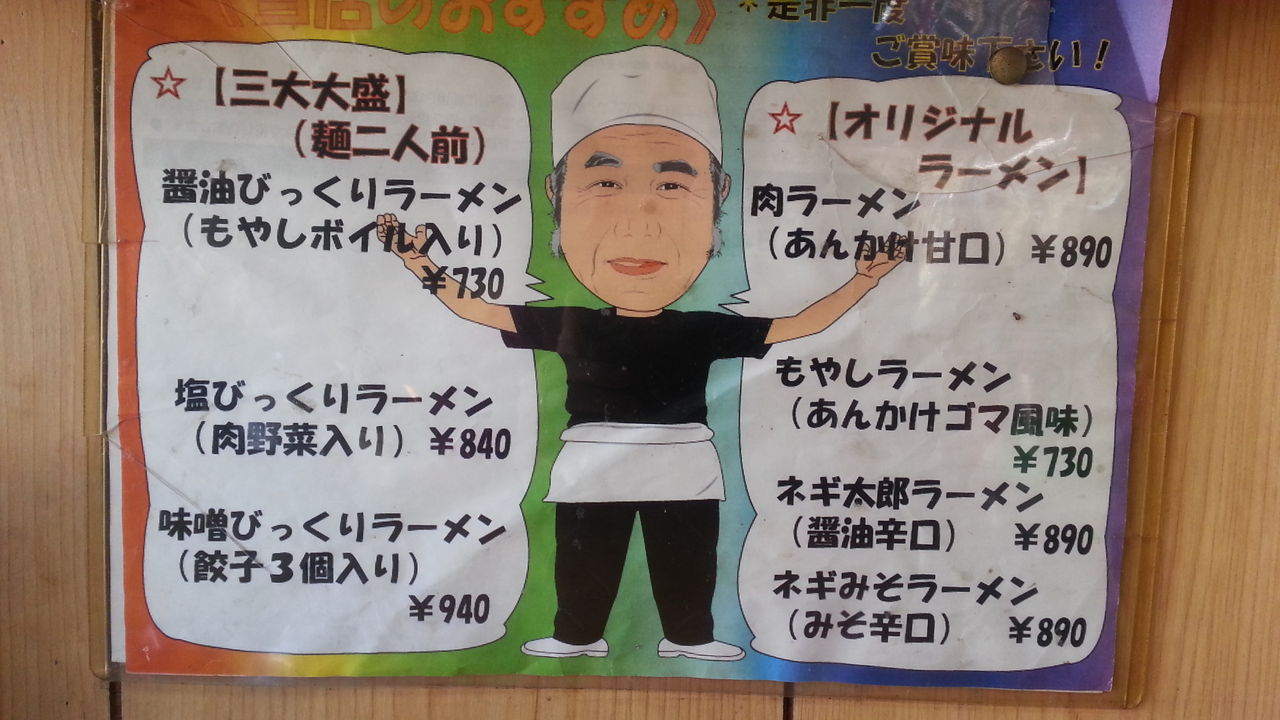 《当店のおすすめ》
*是非一度
ご賞味下さい！
☆【三大大盛】
（麺二人前）
醤油びっくりラーメン
（もやしボイル入り）
￥730
塩びっくりラーメン
（肉野菜入り）￥840
味噌びっくりラーメン
（餃子３個入り）
￥940
☆【オリジナル
ラーメン】
肉ラーメン
（あんかけ甘口）￥890
もやしラーメン
（あんかけゴマ風味）
￥730
ネギ太郎ラーメン
（醤油辛口）￥890
ネギみそラーメン
（みそ辛口）￥890